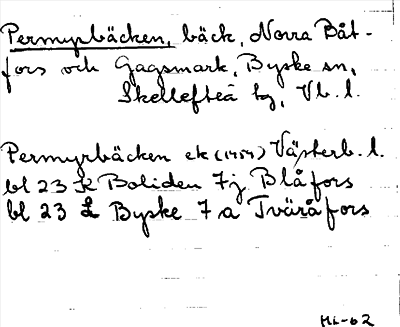 Permyrbäcken, bäck, Norra Båt-
fors och Gagsmark, Byske sn,
Skellefteå tg, Vb. l.
Permyrbäcken ek (1959) Västerb. l.
bl 23 K Boliden 7j Blåfors
bl 23 L Byske 7a Tväråfors